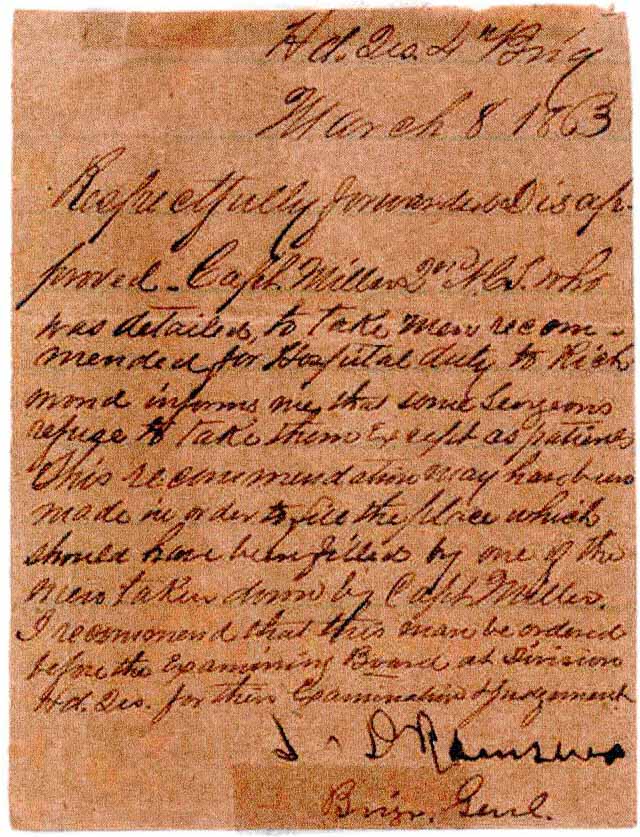 Hd. Qrs. 4th Brig
March 8 1863
Respectfully forwarded Disap-
proved. Capt. Miller 2nd N.C.T. who
was detailed, to take men recom-
mended for Hospital duty to Rich
mond informs me, that some Surgeons
refuse to take them Except as patients
This recommendation may have been
made in order to fill the place which
should have been filled by one of the
men taken down by Capt Miller.
I recommend that this man be ordered
before the Examining Board at Division
Hd. Qrs. for their Examination & Judgement
S. D. Ramseur
Brig. Genl.